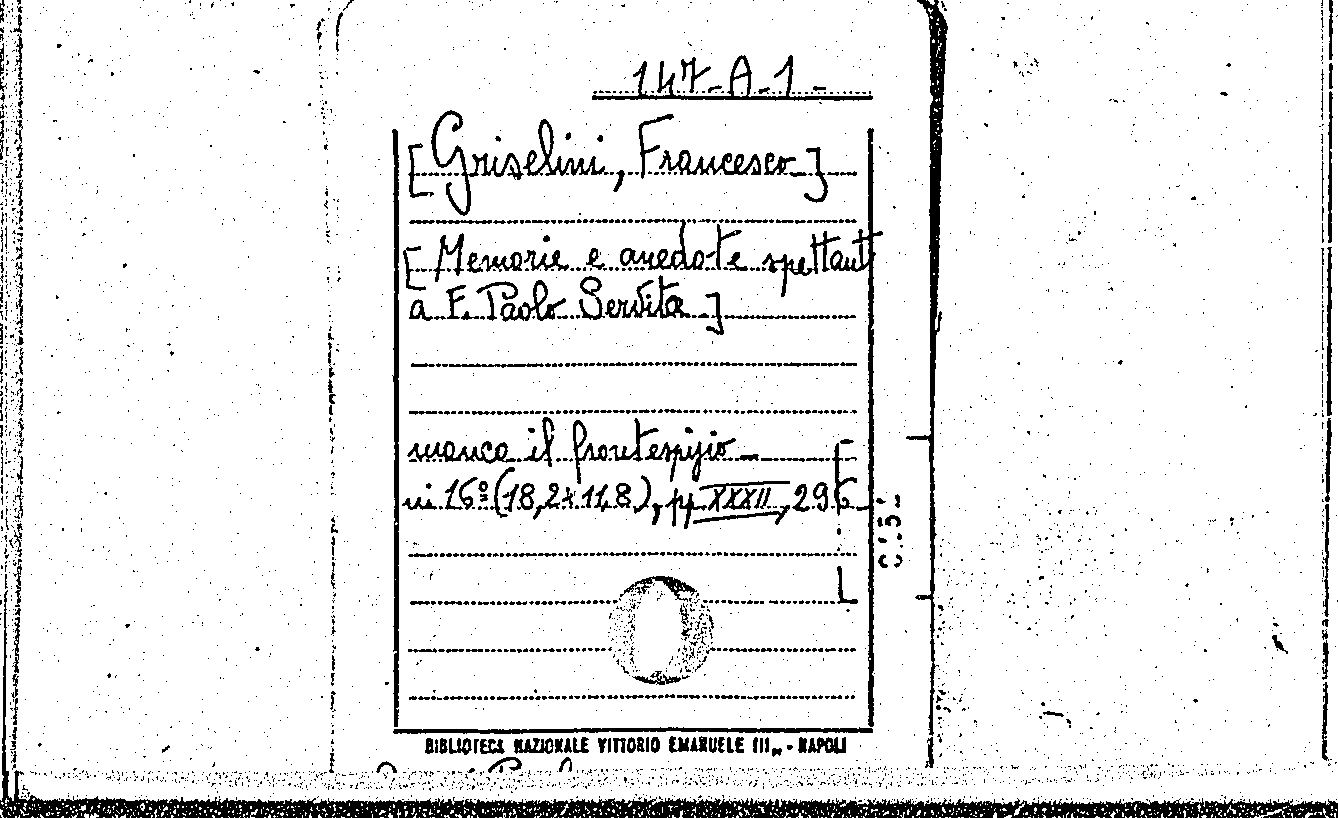 147-A-1-
[Griselini, Francesco]
[Memorie e anedote spettanti
a F. Paolo Servita]
manca il frontespizio -
in 16º (18,2 x 11,8), pp. XXXII, 296
BIBLIOTECA NAZIONALE VITTORIO EMANUELE III„ - NAPOLI